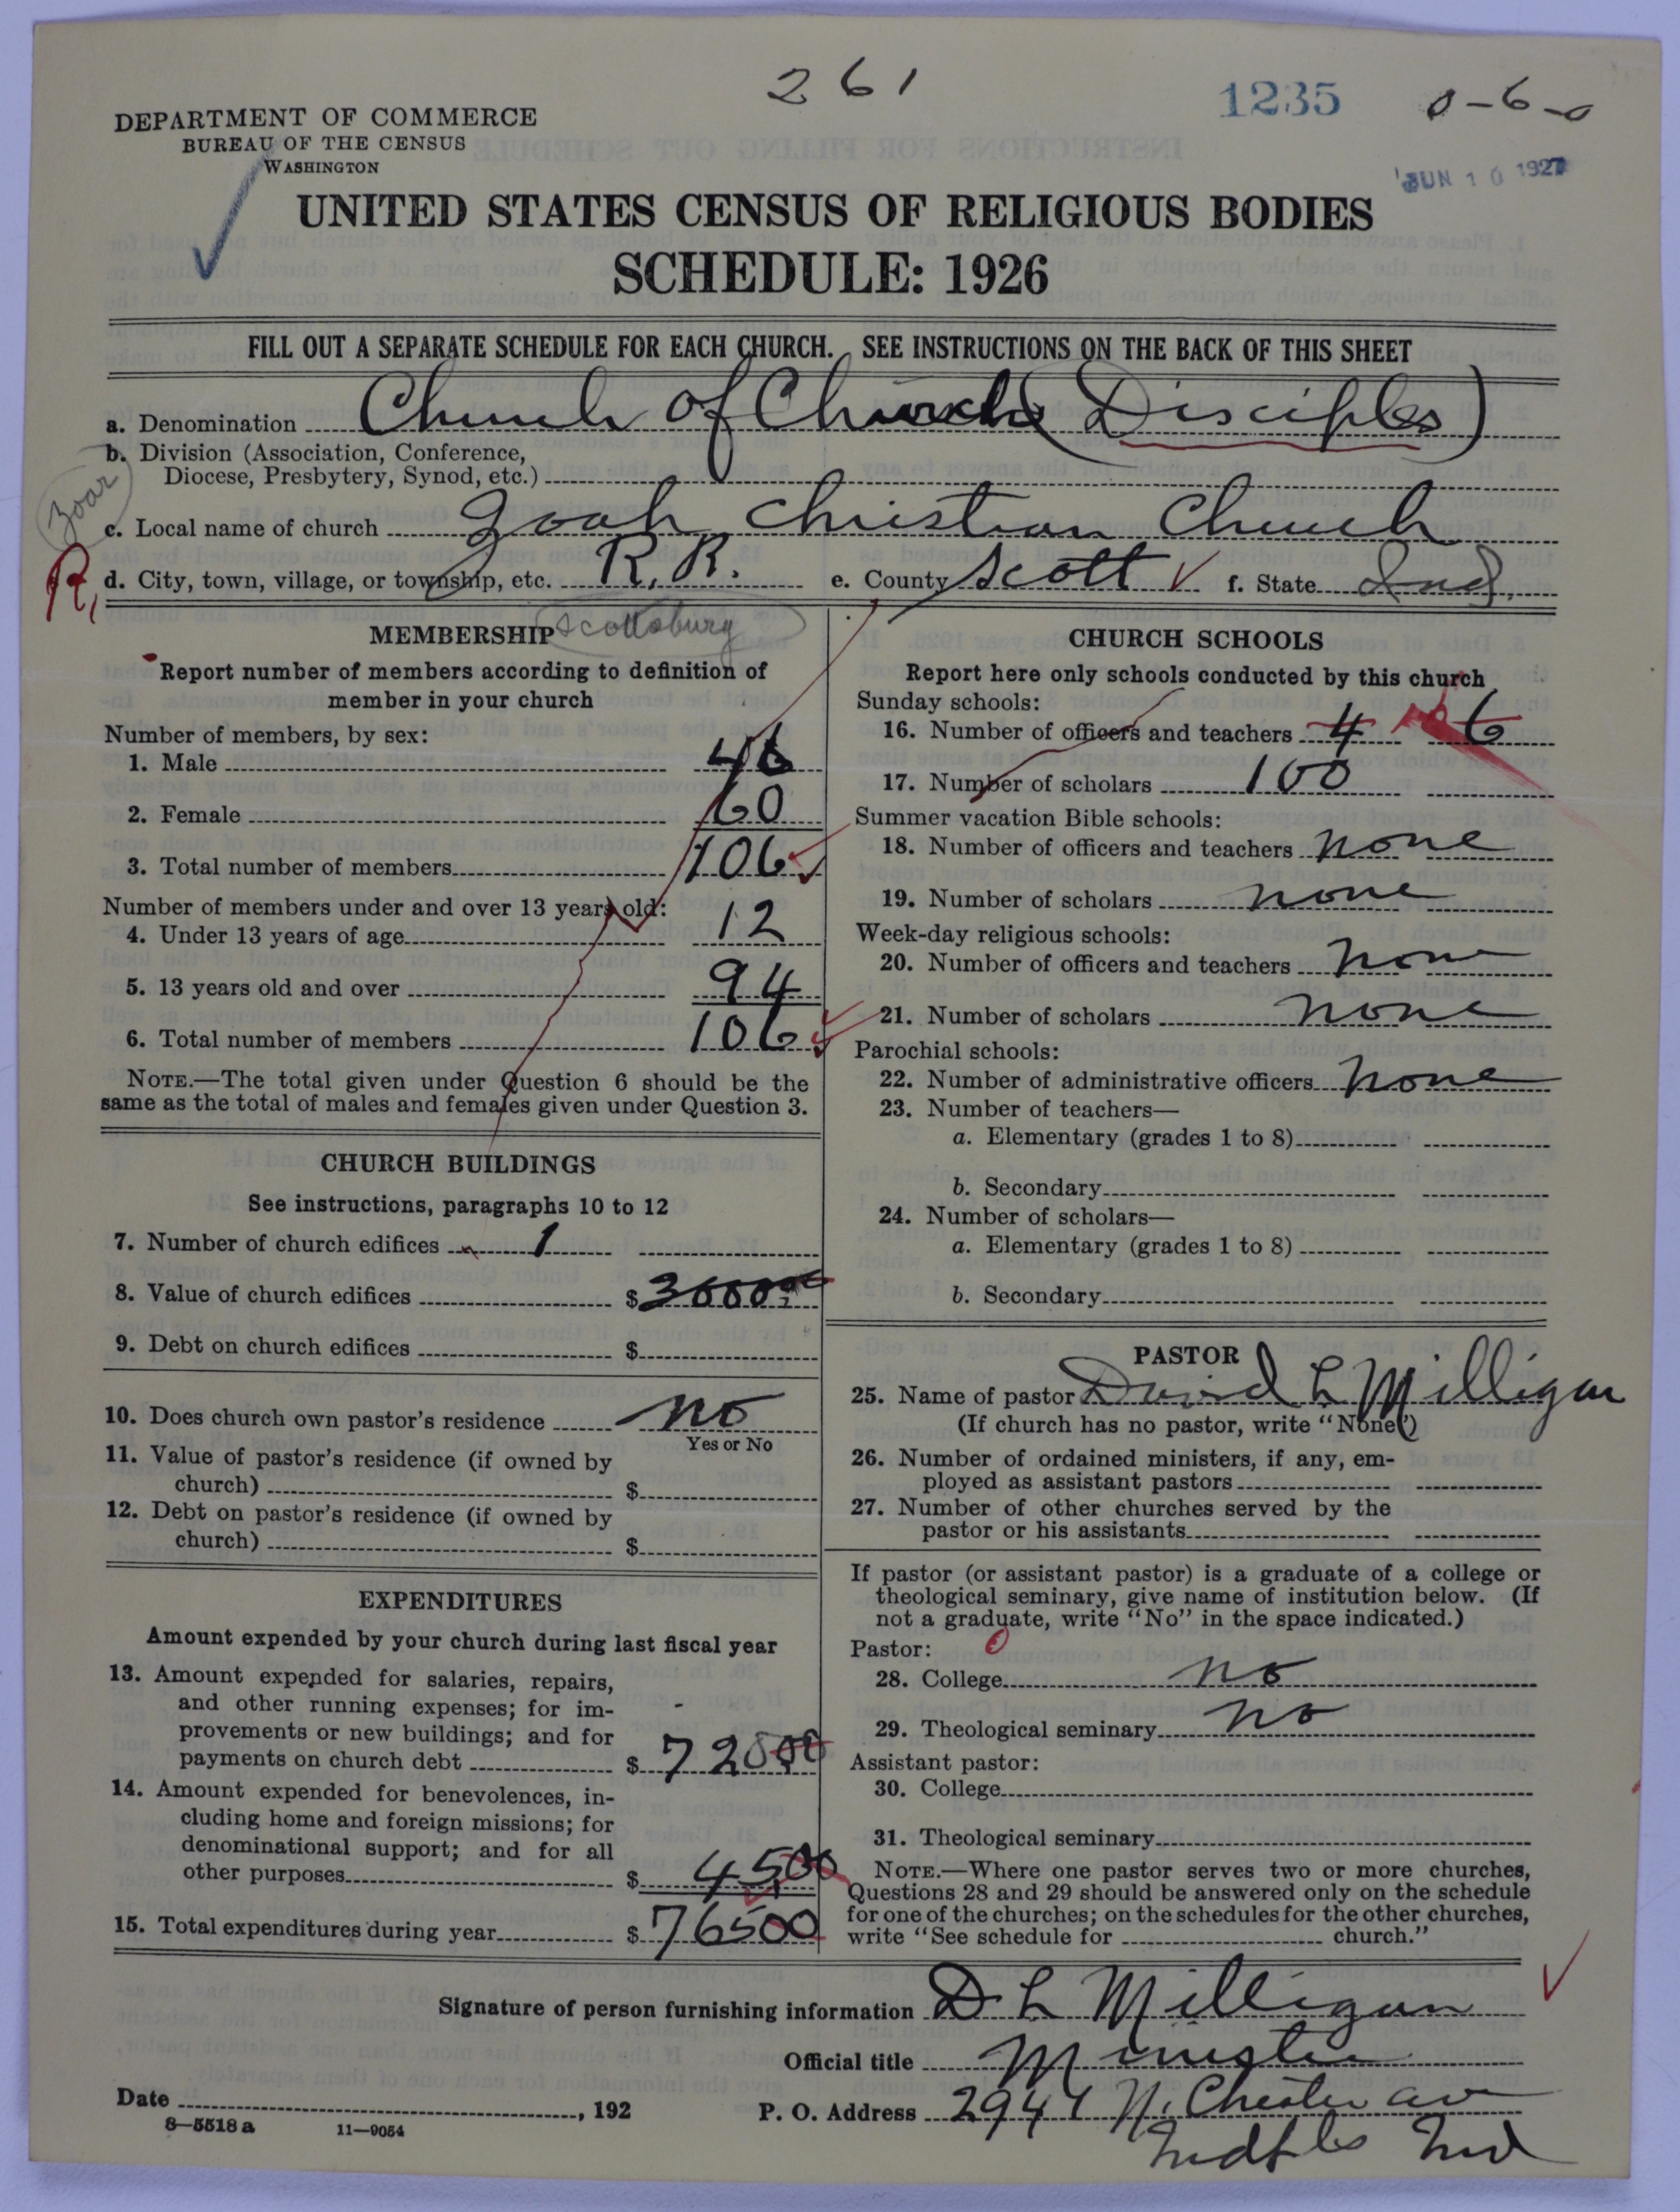 261
1235
0-6-0
JUN 10 1927
DEPARTMENT OF COMMERCE
BUREAU OF THE CENSUS
WASHINGTON
UNITED STATES CENSUS OF RELIGIOUS BODIES
SCHEDULE: 1926
FILL OUT A SEPARATE SCHEDULE FOR EACH CHURCH. SEE INSTRUCTIONS ON THE BACK OF THIS SHEET
a. Denomination Church of (Disciples)
b. Division (Association, Conference,
Diocese, Presbytery, Synod, etc.)
Zoar
c. Local name of church Zoah Christian Church
R, d. City, town, village, or township, etc. R. R. e. County Scott f. State Ind,
Scottsburg
MEMBERSHIP
Report number of members according to definition of
member in your church
Number of members, by sex:
1. Male 46
2. Female 60
3. Total number of members 106
Number of members under and over 13 years old:
4. Under 13 years of age 12
5. 13 years old and over 94
6. Total number of members 106
NOTE.—The total given under Question 6 should be the
same as the total of males and females given under Question 3.
CHURCH BUILDINGS
See instructions, paragraphs 10 to 12
7. Number of church edifices 1
8. Value of church edifices $3000.00
9. Debt on church edifices $
10. Does church own pastor's residence no
Yes or No
11. Value of pastor's residence (if owned by
church) $
12. Debt on pastor's residence (if owned by
church) $
EXPENDITURES
Amount expended by your church during last fiscal year
13. Amount expended for salaries, repairs,
and other running expenses; for im-
provements or new buildings; and for
payments on church debt $ 720.00
14. Amount expended for benevolences, in-
cluding home and foreign missions; for
denominational support; and for all
other purposes $ 45.00
15. Total expenditures during year $ 76500
CHURCH SCHOOLS
Report here only schools conducted by this church
Sunday schools:
16. Number of officers and teachers 4 6
17. Number of scholars 100
Summer vacation Bible schools:
18. Number of officers and teachers none
19. Number of scholars none
Week-day religious schools:
20. Number of officers and teachers none
21. Number of scholars none
Parochial schools:
22. Number of administrative officers none
23. Number of teachers—
a. Elementary (grades 1 to 8)
b. Secondary
24. Number of scholars—
a. Elementary (grades 1 to 8)
b. Secondary
PASTOR
25. Name of pastor David L Milligan
(If church has no pastor, write "None")
26. Number of ordained ministers, if any, em-
ployed as assistant pastors
27. Number of other churches served by the
pastor or his assistants
If pastor (or assistant pastor) is a graduate of a college or
theological seminary, give name of institution below. (If
not a graduate, write "No" in the space indicated.)
Pastor:
28. College no
29. Theological seminary no
Assistant pastor:
30. College
31. Theological seminary
NOTE.—Where one pastor serves two or more churches,
Questions 28 and 29 should be answered only on the schedule
for one of the churches; on the schedules for the other churches,
write "See schedule for church."
Signature of person furnishing information D L Milligan
Official title Minister
Date , 192 P. O. Address 2941 N. Chester av
Indpls Ind
8—5518 a 11—9054